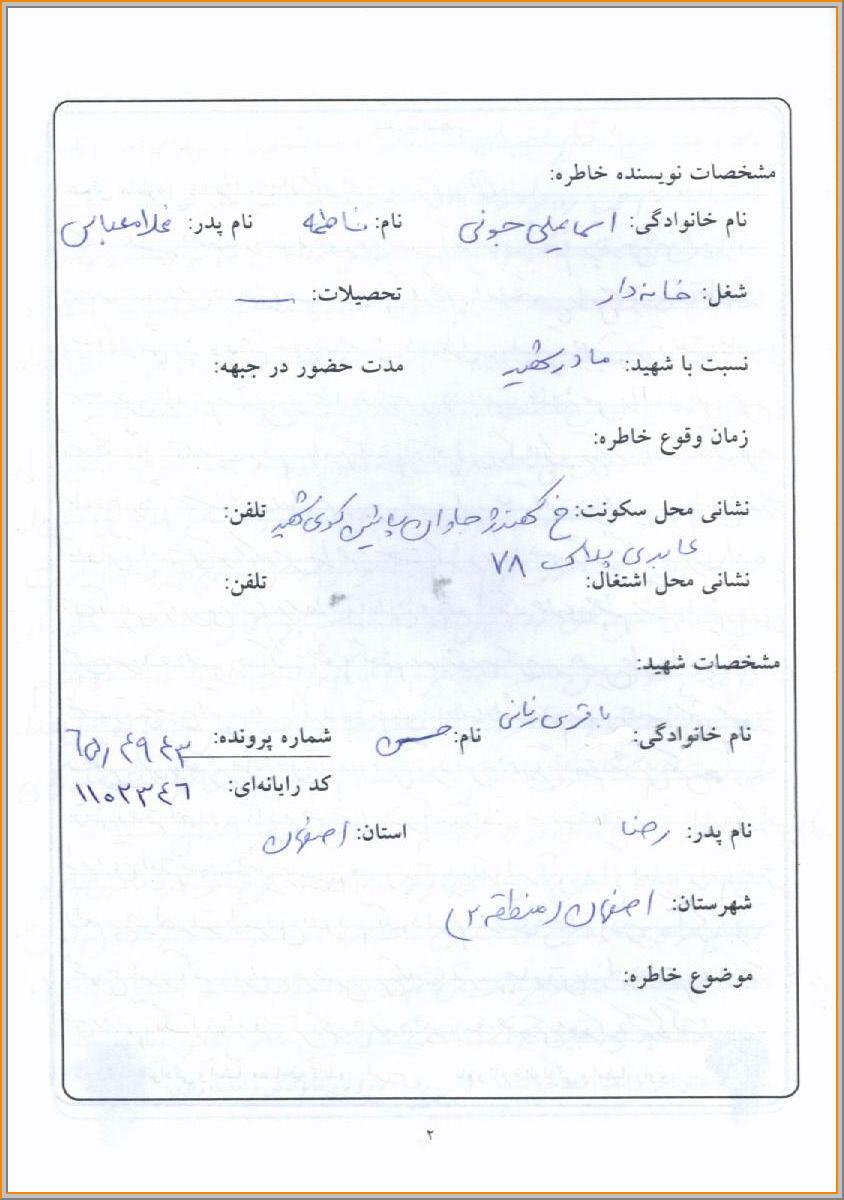 مشخصات نویسنده خاطره:
نام خانوادگی: اسماعیلی جونی نام: فاطمه نام پدر: غلامعباس
شغل: خانه دار تحصیلات: ــــ
نسبت با شهید: مادر شهید مدت حضور در جبهه:
زمان وقوع خاطره:
نشانی محل سکونت: خ کهندژ جاوان پائین کوی شهید تلفن:
عابدی پلاک ۷۸
نشانی محل اشتغال: تلفن:
مشخصات شهید:
نام خانوادگی: باقری زنانی نام: حسن شماره پرونده: ۶۵/۴۹۴۳
کد رایانه‌ای: ۱۱۰۲۳۴۶
نام پدر: رضا استان: اصفهان
شهرستان: اصفهان (منطقه ۲)
موضوع خاطره:
۲